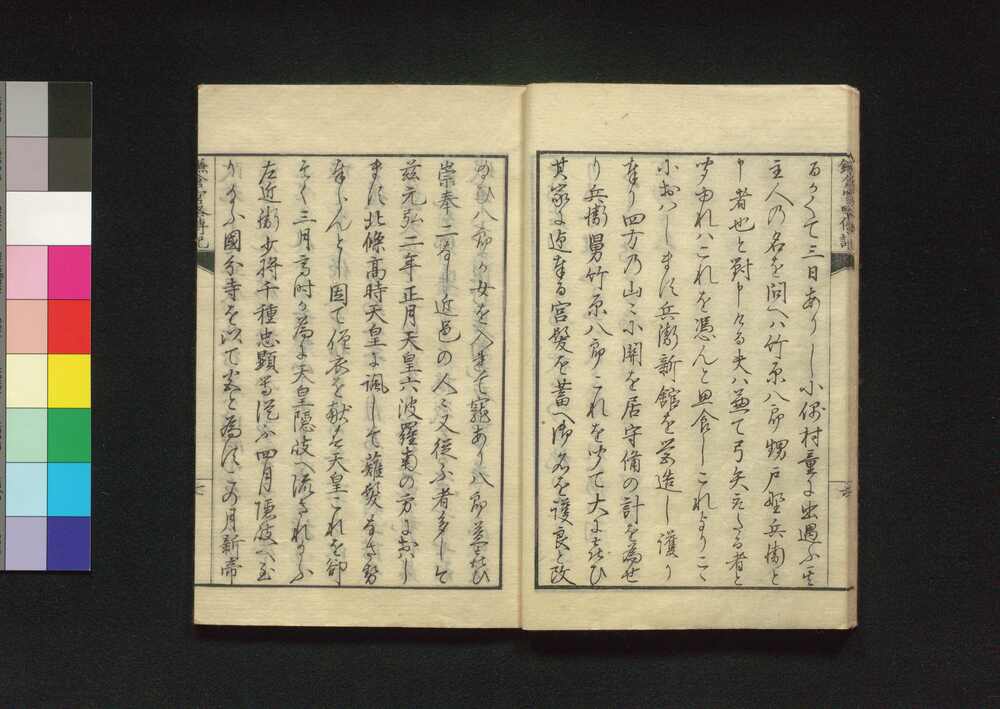 るかくて三日ありし小偶村童に出遇ふ其
主人の名を問へハ竹原八郎甥戸野兵衛と
申者也と對申ける夫ハ兼て弓矢たる者と
聞召れハこれを憑んと思食しこれよりこゝ
におハします兵衛新館を営造し護り
奉り四方乃山々に関を居守備の計を為せ
り兵衛舅竹原八郎これを聞て大に喜ひ
其家に迎奉る宮髪を蓄へ御名を護良と改
給ひ八郎か女を入まて寵あり八郎益喜ひ
崇奉二なし近邑の人々又従ふ者多しとそ
茲元弘二年正月天皇六波羅南の方におハし
ます北條高時天皇に諷して薙髪なさせ
奉らんとし因て僧衣を献す天皇これを卻
そく三月高時か為に天皇隠岐へ流され給ふ
左近衛少将千種忠顯等従ふ四月隠岐へ至
り給ふ國分寺を以て宮と為すこの月新帝
鎌倉宮略傳記
六
鎌倉宮略傳記
七